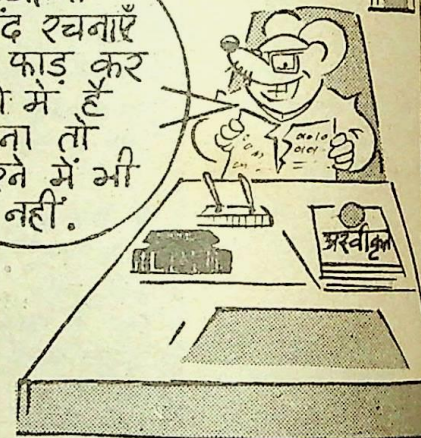 द रचनाएँ
फाड़ कर
में है
ना तो
ने में भी
नहीं.
अस्वीकृत